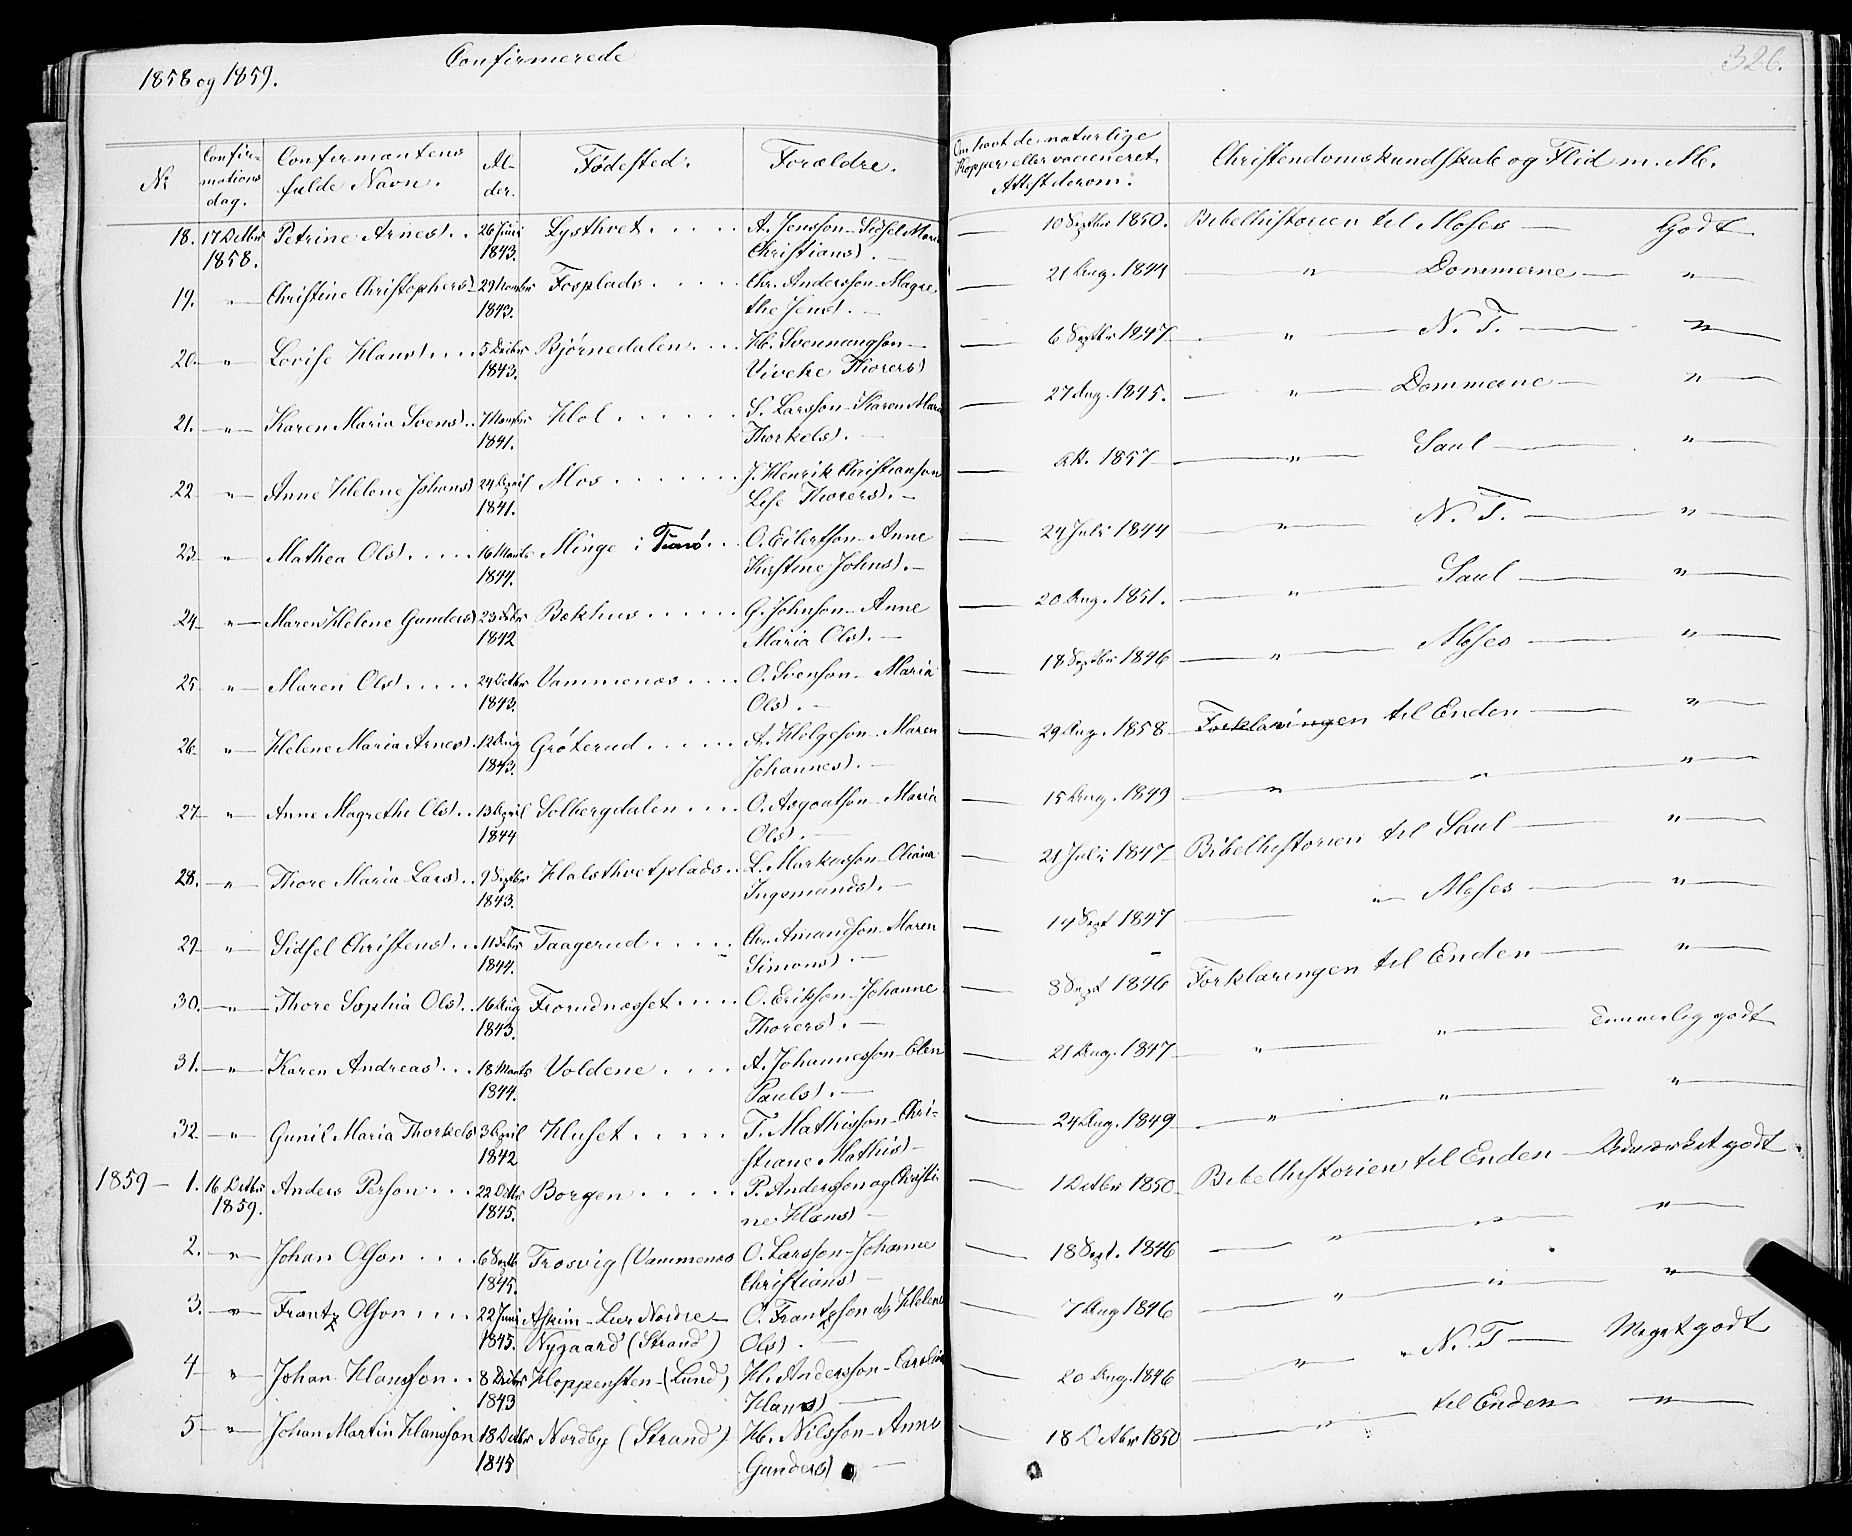 Confirmerede
1858 og 1859.
326.
Nr
Confirmations dag.
Confirmantens fulde Navn.
Alder.
Fødested.
Forældre.
Om havt de naturlige Kopper eller vaccineret Attest derom.
Christendomskundskab og Flid m. M.
18. 17 Octbr 1858. Petrine Arnesd. . 26 Juni 1843. Lysthvet . . . . . A. Jensson - Sidsel Maria Christiansd. — 10 Septbr 1850. Bibelhistorien til Moses — Godt
19. " Christine Christophersd. 29 Novmbr 1843. Fosplads . . . . . Chr. Andersson - Magrethe Jensd. — 21 Aug. 1844 " Dommerne — "
20. " Lovise Hansd. . . . 5 Decbr 1843. Bjørnedalen . . . H. Svenningson - Viveke Thorersd — 6 Septbr 1847 " N. T. — "
21. " Karen Maria Svensd. . 7 Novmbr 1841. Hol . . . . . . S. Larsson - Karen Maria Thorkelsd. — 27 Aug. 1845. " Dommerne — "
22 " Anne Helene Johansd 24 April 1841. Mos . . . . . . J. Henrik Christianson Lise Thorersd. — Oct. 1857 " Saul — "
23. " Mathea Olsd. . . . . 16 Marts 1844. Minge i Tunø . . O. Eilertson - Anne Kirstine Johnsd. — 24 Juli 1844 " N. T. — "
24 " Maren Helene Gundersd 23 Febr 1842 Bækhus . . . . . G. Johnson - Anne Maria Olsd. — 20 Aug. 1851. " Saul — "
25 " Maren Olsd. . . . . 24 Octbr 1843. Vammenæs . . . . O. Svenson - Maria Olsd. — 18 Septbr 1846 " Moses — "
26 " Helene Maria Arnesd. 12 Aug 1843. Grøterud . . . . . A. Helgeson - Maren Johannesd. — 29 Aug. 1858 Forklaringen til Enden — "
27 " Anne Magrethe Olsd. . 13 April 1844 Solbergdalen . . . . O. Asgoutson - Maria Olsd. — 15 Aug. 1849 " " "
28. " Thore Maria Larsd. . 9 Septbr 1843. Halsthvetplads . . L. Markusson - Oliana Ingemundsd. — 21 Juli 1847 Bibelhistorien til Saul — "
29 " Sidsel Christensd. . . 11 Febr 1844. Taagerud . . . . . Chr. Amundson - Maren Simonsd. — 14 Sept 1847 " Moses — "
30. " Thore Sophia Olsd. . 16 Aug 1843. Trondnæsset . . . . O. Erikson - Johanne Thorersd. — 8 Sept 1846 Forklaringen til Enden — "
31. " Karen Andreasd. . . 18 Marts 1844. Voldene . . . . A. Johannesson - Elen Paulsd. — 21 Aug. 1847 " " Temmelig godt
32 " Gunil Maria Thorkelsd 3 April 1842 Huset . . . . . T. Mathisson - Christiane Mathisd — 24 Aug. 1849 " " "
1859 — 1. 16 Octbr 1859. Anders Person . . . 22 Octbr 1845. Borgen . . . . . P. Andersson og Christine Hansd — 1 Octbr 1850 Bibelhistorien til Enden — Udmærket godt
2. " Johan Olson . . . . 6 Septb 1845. Trosvig (Vammenæs O. Larsson - Johanne Christiansd — 18 Sept. 1846 " " "
3. " Frantz Olson . . . . 22 Juni 1845. Askim - Lier Nordre - Nygaard (Strand) O. Frantzson og Helene Olsd. — 7 Aug 1846 " " "
4 " Johan Hansson . . 8 Decbr 1843 Kloppensten - (Lund) H. Andersson - Caroline Hansd — 20 Aug. 1846 " " N. T — Meget godt
5 " Johan Martin Hansson 18 Octbr 1845 Nordby (Strand) H. Nilsson - Anne Gundersd — 18 Octbr 1850 " til Enden — "